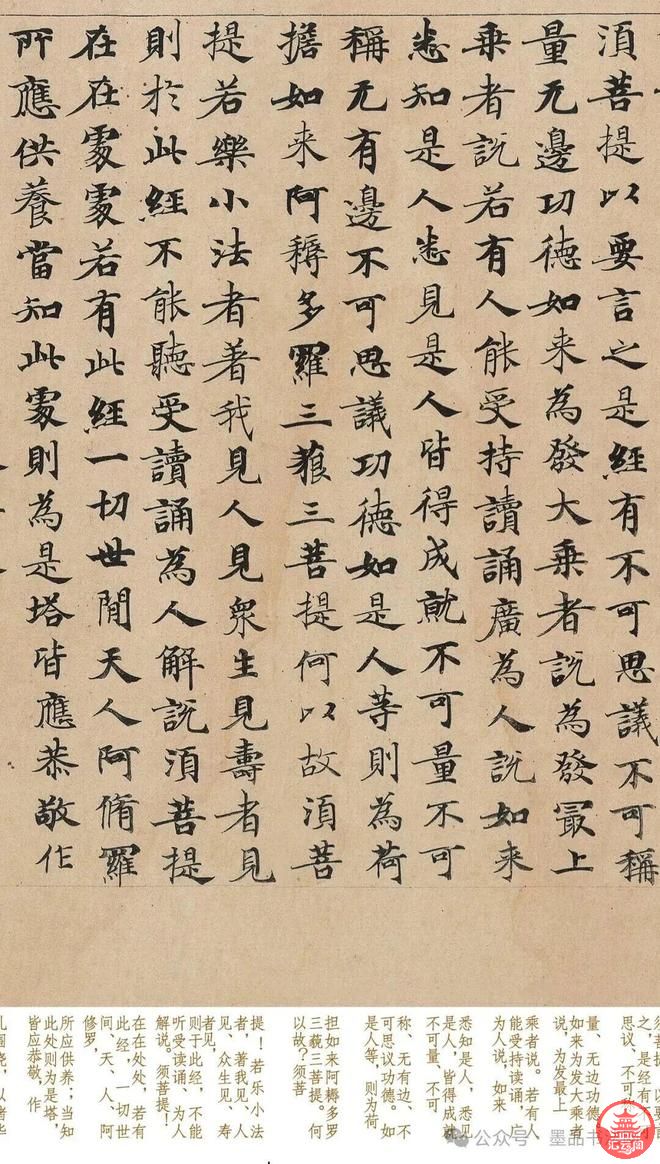 須菩提以要言之是經有不可思議不可稱
量无邊功德如来為發大乘者說為發冣上
乘者說若有人能受持讀誦廣為人說如来
悉知是人悉見是人皆得成就不可量不可
稱无有邊不可思議功德如是人等則為荷
擔如来阿耨多羅三藐三菩提何以故須菩
提若樂小法者著我見人見衆生見壽者見
則於此經不能聽受讀誦為人解說須菩提
在在處處若有此經一切世間天人阿脩羅
所應供養當知此處則為是塔皆應恭敬作
量、无边功德
如来为发大乘者
说，为发最上
乘者说。若有人
能受持读诵，广
为人说，如来
悉知是人，悉见
是人，皆得成就
不可量、不可
称、无有边、不
可思议功德。如
是人等，则为荷
担如来阿耨多罗
三藐三菩提。何
以故？须菩
提！若乐小法
者，著我见、人
见、众生见、寿
者见，
则于此经，不能
听受读诵、为人
解说。须菩提！
在在处处，若有
此经，一切世
间、天、人、阿
修罗，
所应供养；当知
此处则为是塔，
皆应恭敬，作
公众号
墨品书
汇云阁